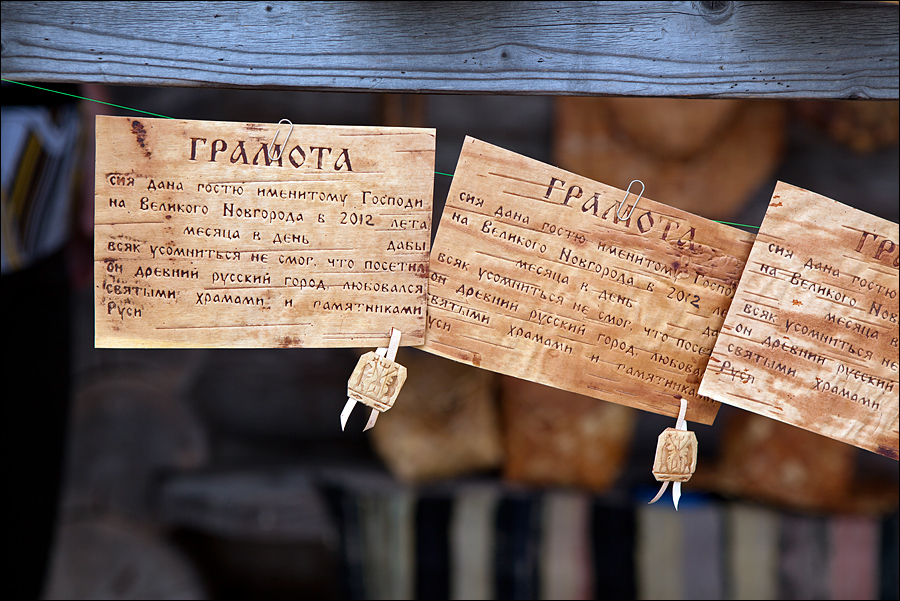 ГРАМОТА
сия дана гостю именитому Господи
на Великого Новгорода в 2012 лета
месяца в день дабы
всяк усомниться не смог, что посетил
он древний русский город, любовался
святыми храмами и памятниками
Руси
ГРАМОТА
сия дана гостю именитому Госпо
на Великого Новгорода в 2012 ле
месяца в день да
всяк усомниться не смог, что посе
он древний русский город, любова
святыми храмами и памятниками
Руси
ГРА
сия дана гостю
на Великого Новг
месяца в
всяк усомниться не
он древний русский
святыми храмами
Руси